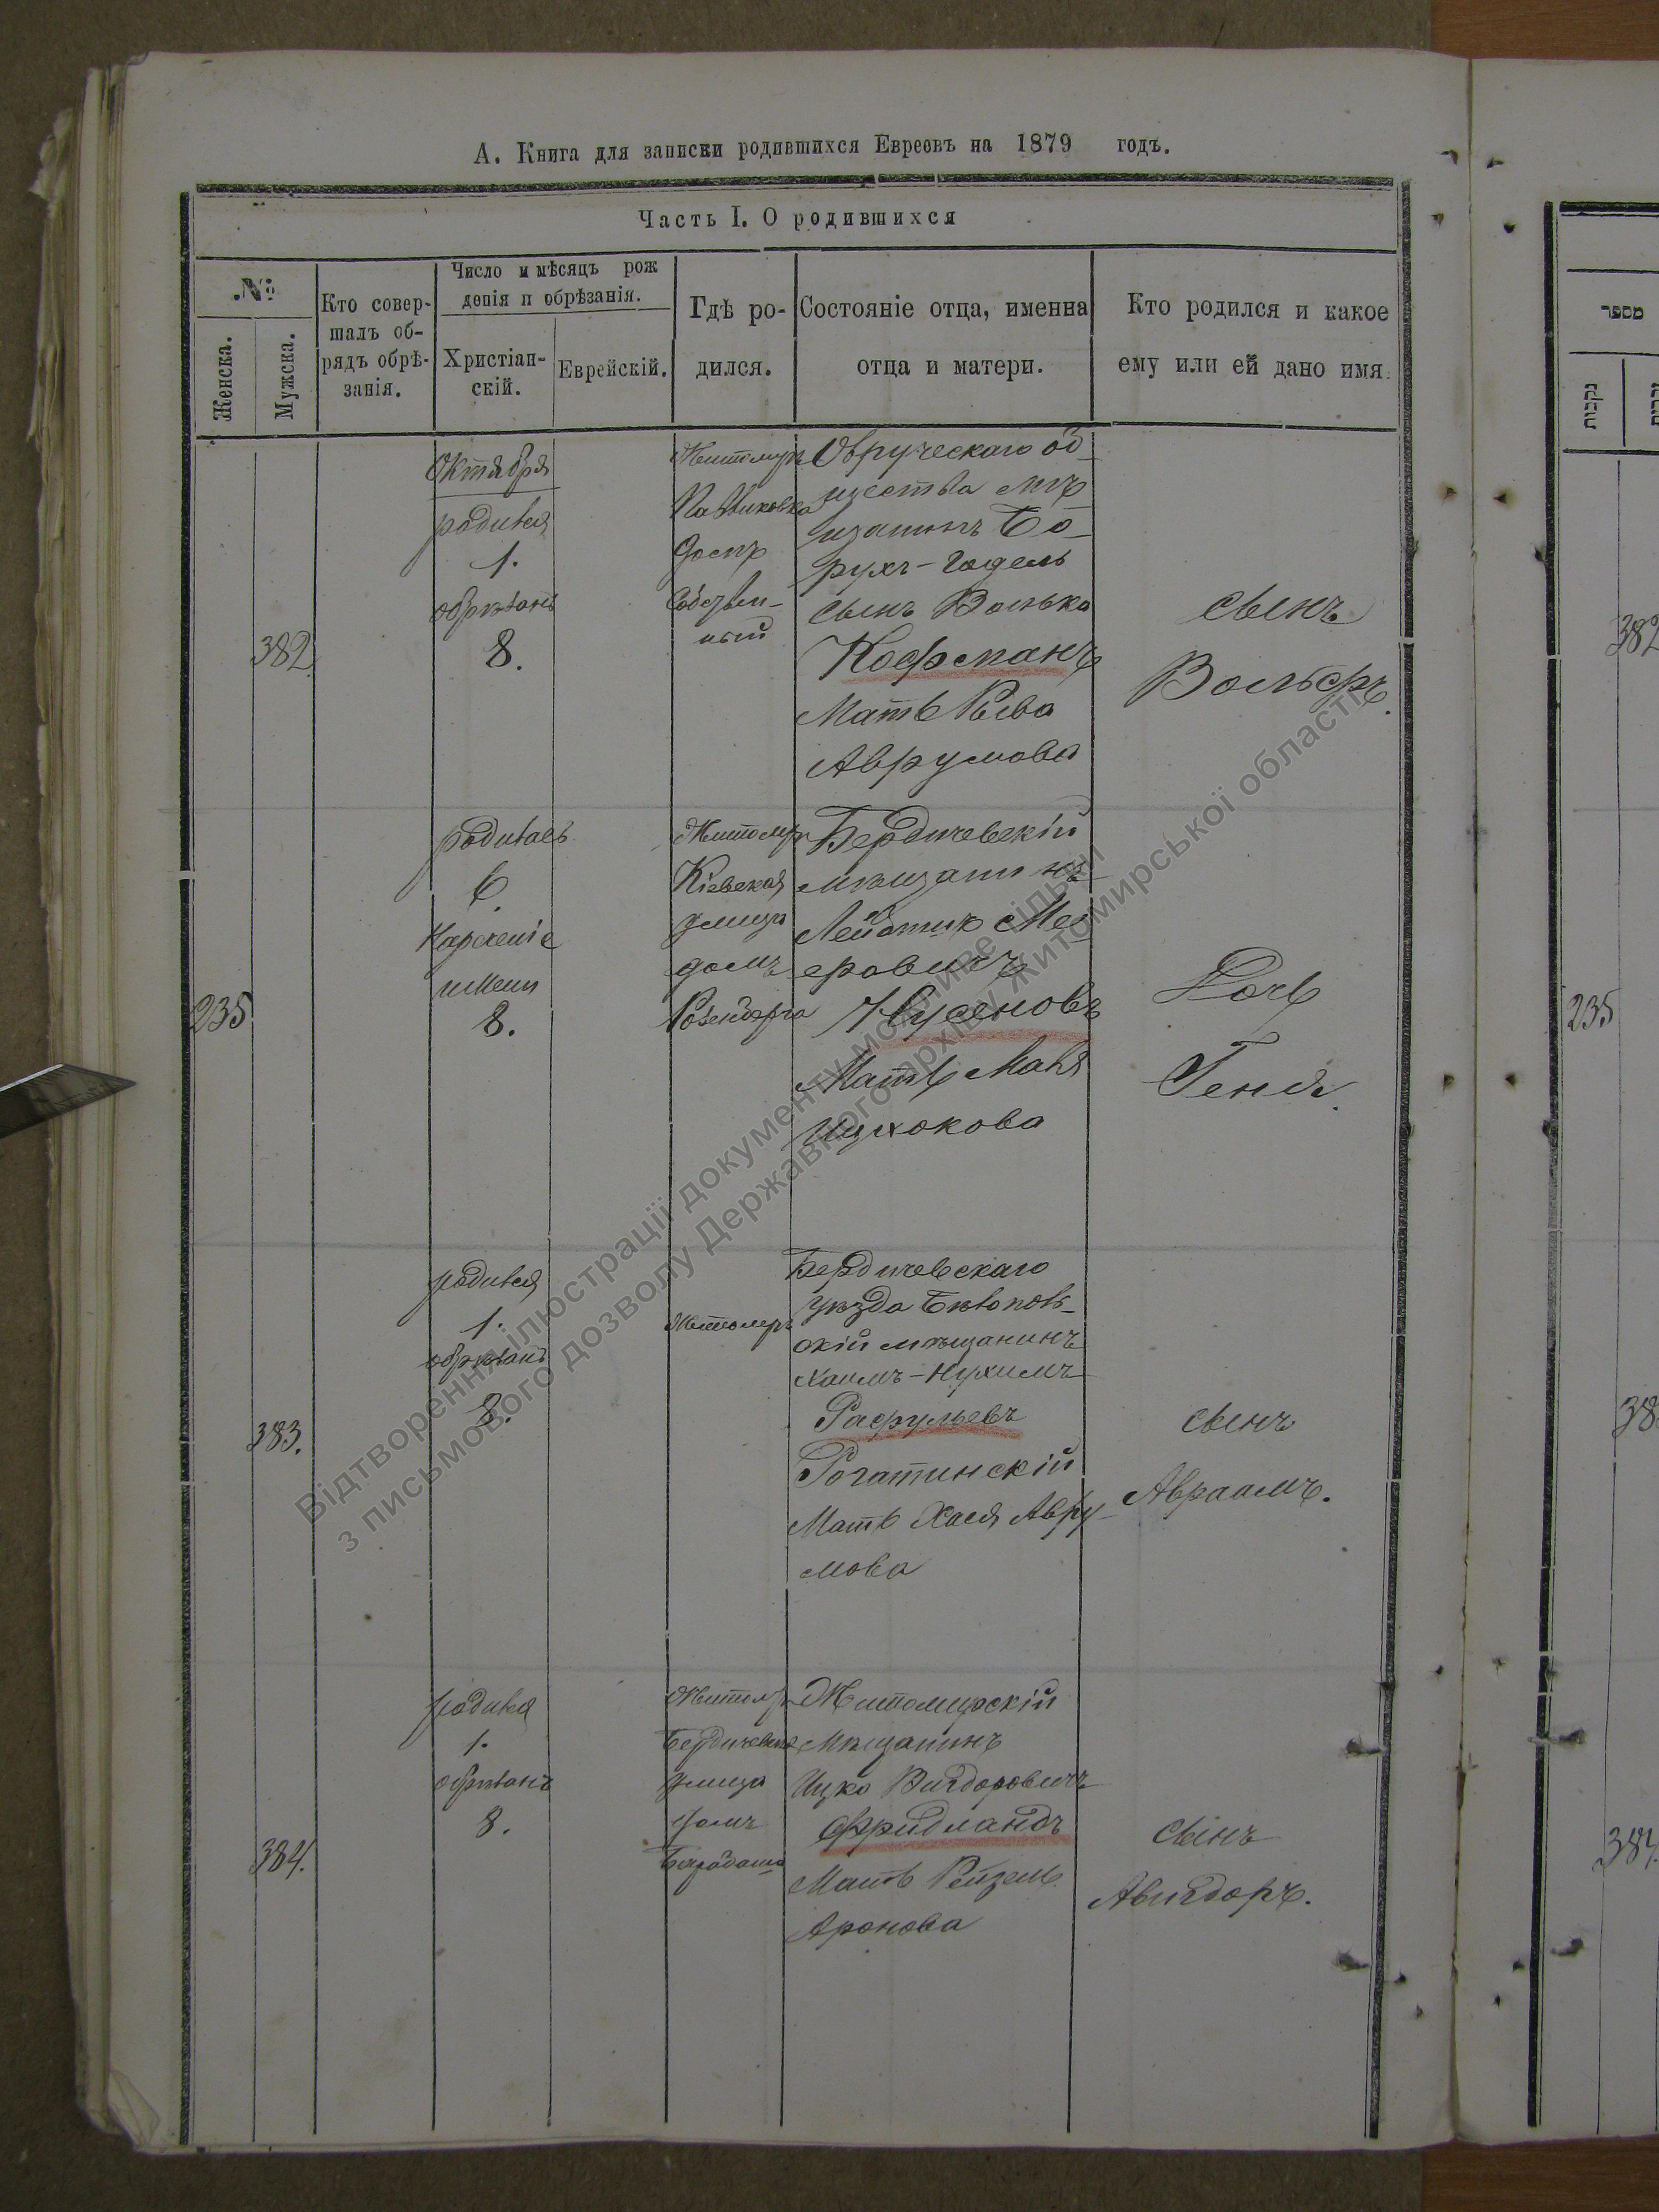 А. Книга для записки родившихся Евреевъ на 1879 годъ.
Часть I. О родившихся
№
Женска.
Мужска.
Кто совер-
шалъ об-
рядъ обрѣ-
занія.
Число и мѣсяцъ рож
денія и обрѣзанія.
Христіан-
скій.
Еврейскій.
Гдѣ ро-
дился.
Состояніе отца, именна
отца и матери.
Кто родился и какое
ему или ей дано имя.
382.
Октября
родился
1.
обрѣзанъ
8.
Житомиръ
Овруческаго об-
щества мѣ
щанинъ Бо-
рухъ-Гадель
сынъ Волька
Кофманъ
Мать Рыва
Аврумова
сынъ
Вольфъ.
235
родилась
6.
нареченіе
имени
8.
Житомиръ
Кіевская
улица
домъ
Розенберга
Бердичевскій
мѣщанинъ
Лейбтикъ Мей-
еровичъ
Нусеновъ
Мать Маня
Ицхокова
Дочь
Геня.
383.
родился
1.
обрѣзанъ
8.
Житомиръ
Бердичевскаго
уѣзда Бѣлополь-
скій мѣщанинъ
Хаимъ-Нухимъ
Рафульевъ
Рогатинскій
Мать Хася Авру-
мова
сынъ
Авраамъ.
384.
родился
1.
обрѣзанъ
8.
Житомиръ
Бердичевская
улица
домъ
Житомирскій
Мѣщанинъ
Ицко Вигдоровичъ
Фридландъ
Мать Рейзель
Аронова
сынъ
Авигдоръ.
מספר
נקבות
382
235
38
384.
Відтворення ілюстрації документу можливе тільки
з письмового дозволу Державного архіву Житомирської області